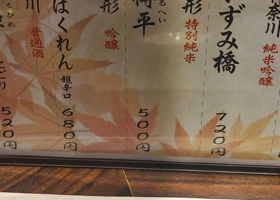 奈川
純米
ずみ橋
720円
形
特別純米
将平
500円
形
吟醸
はくれん
超辛口
680円
川
普通酒
くひめ
520円